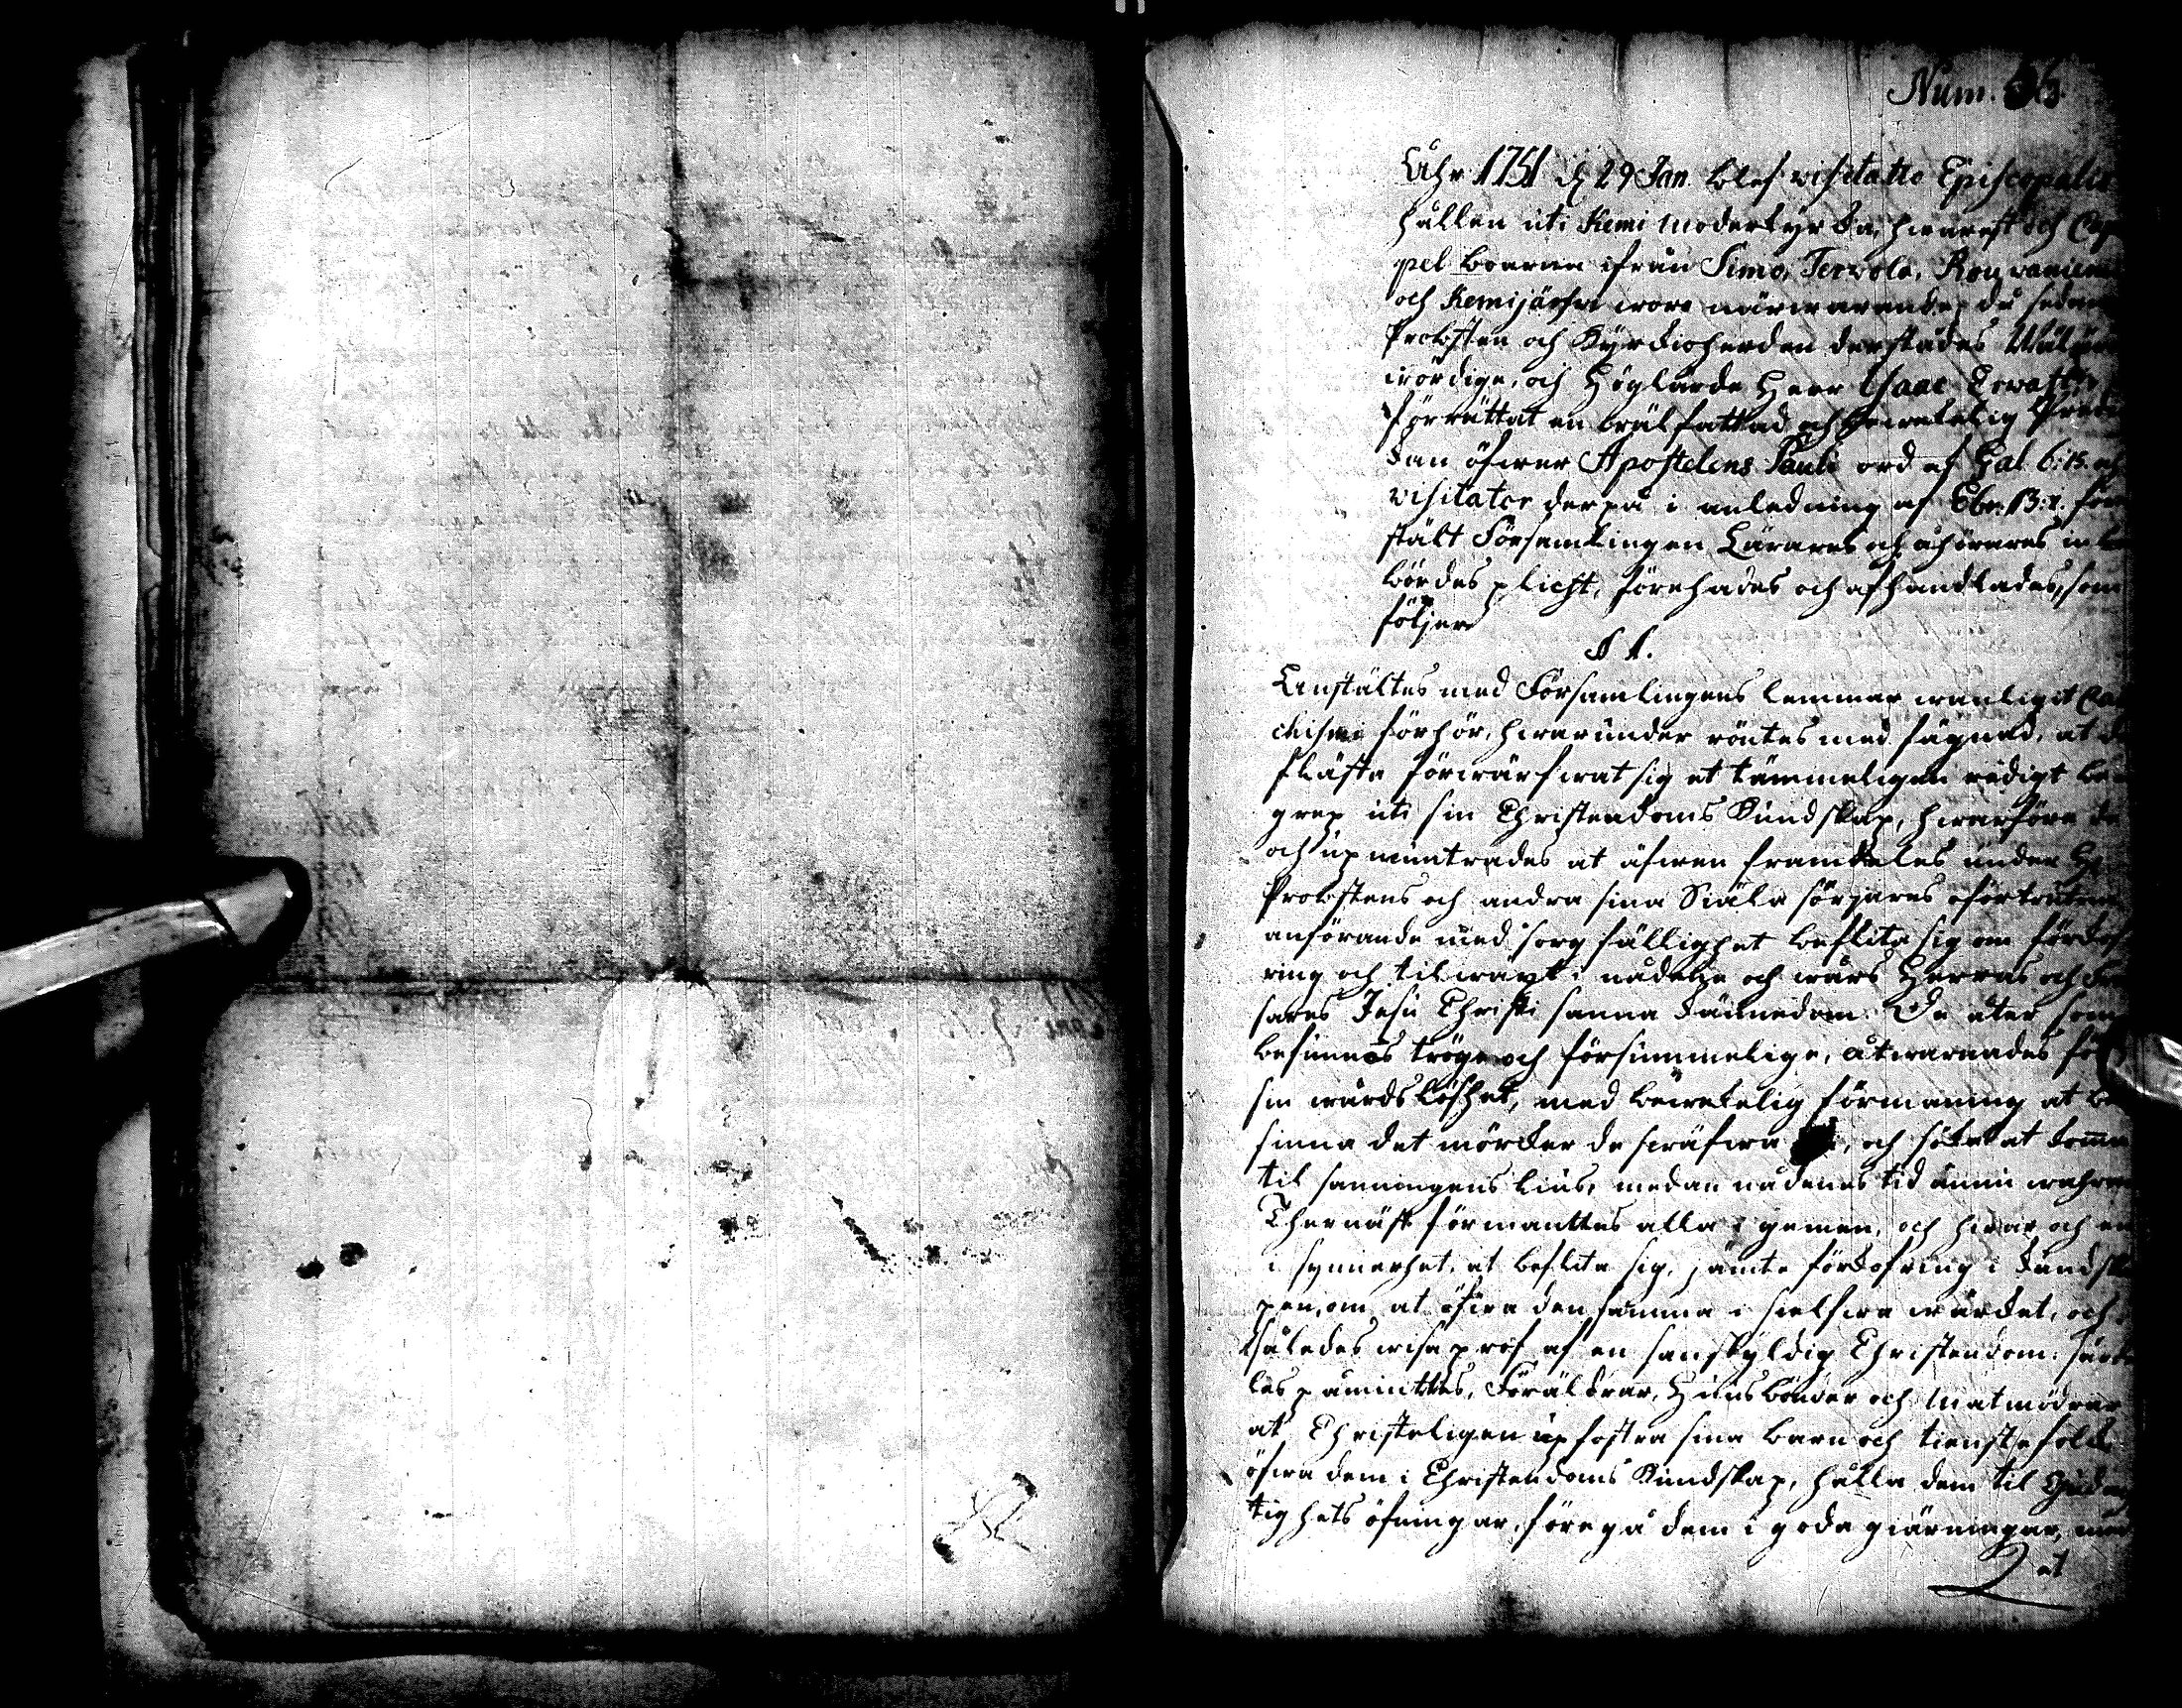 Num. 36.
Åhr 1751 d. 29 Jan blef visitatio Episcopalis
hållen uti Kemi moderkyrka, hwarest och Cap
pel boerne ifrån Simo, Tervola, Rouvaniemi
och Kemijärfwi woro närwarande; då sedan
Probsten och Kyrckioherden derstädes Wäl
wördige, och Höglärde Herr Isaac Erwast
förrättat en wälfattad och bewekelig Predi
kan öfwer Apostelens Pauli ord af Gal 6: 15. och
visitator derpå i anledning af Ebr: 13: före
stält Församlingen Lärares och åhörares
bördes plicht, förehades och afhandlades, som
följer
§ 1.
Anstältes med Församlingens lemmar wanligit Cate
chismi förhör, hwarunder röntes med fägnad, at de
fläste förwärfwat sig et tämmeligen redigt be
grep uti sin Christendoms Kundskap, hwarföre de
och upmuntrades at äfwen framdeles under H
Probstens och andra sina Siäla sörjares oförtrutna
anförande med sorgfällighet beflita sig om förkof
ring och tilwäxt i nådene och wårs Herras och Frel
sares Jesu Christi sanna kännedom. De åter som
befunnos tröge och försummelige, åtwarnades för
sin wårdslöshet, med bewekelig förmaning at be
sinna det mörcker de swäfwa , och söka at komma
til sanningens lius, medan nådenes tid ännu wahrar
Thernäst förmanttes alla i gemen, och hwar och en
i synnerhet, at beflita sig, jämte förkofring i kundska
pen, om at öfwa den samma i sielfwa wärcket, och
således wisa prof af en sanskyldig Christendom: särde
les påmintes, Föräldrar, Husbönder och Matmödrar
at Christeligen upfostra sina barn och tienstefolck
öfwa dem i Christendoms Kundskap, hålla dem til Gudag
tighets öfningar, föregå dem i goda giärningar, med
at